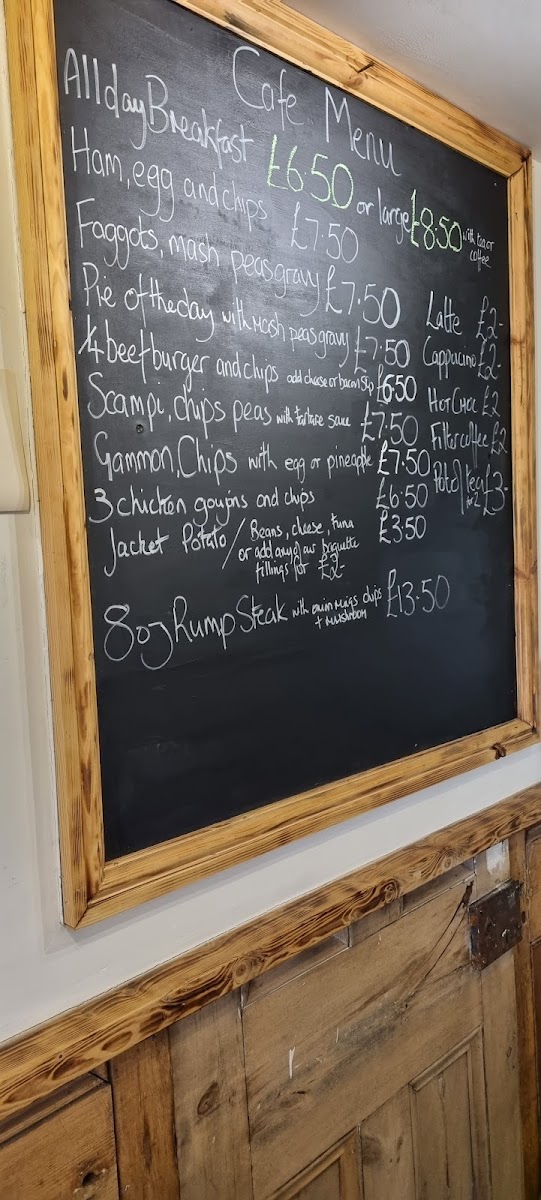 Cafe Menu
All day Breakfast £6.50 or large £8.50 with tea or coffee
Ham, egg and chips £7.50
Faggots, mash peas gravy £7.50
Pie of the day with Mash peas gravy £7.50
1/4 beef burger and chips add cheese or bacon 50p £6.50
Scampi, chips peas with tartare sauce £7.50
Gammon, Chips with egg or pineapple £7.50
3 chicken goujons and chips £6.50
Jacket Potato / Beans, cheese, tuna £3.50
or add any of our baguette
fillings for £2-
8oz Rump Steak with onion rings chips £13.50
+ mushroom
Latte £2-
Cappucino £2-
Hot Choc £2
Filter coffee £2
Pot of tea for 2 £3-